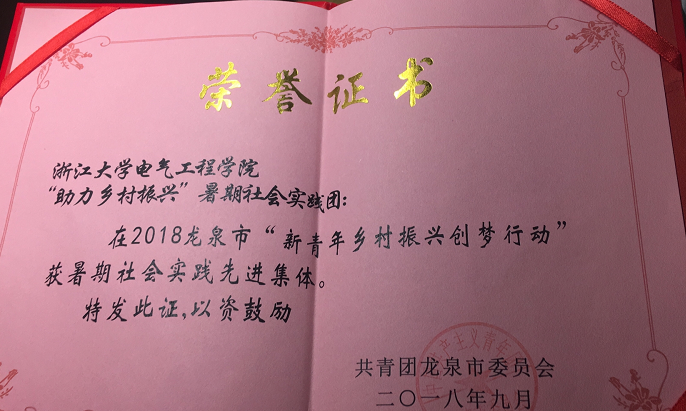 荣誉证书
浙江大学电气工程学院
“助力乡村振兴”暑期社会实践团：
在2018龙泉市“新青年乡村振兴创梦行动”
获暑期社会实践先进集体。
特发此证，以资鼓励
共青团龙泉市委员会
二〇一八年九月